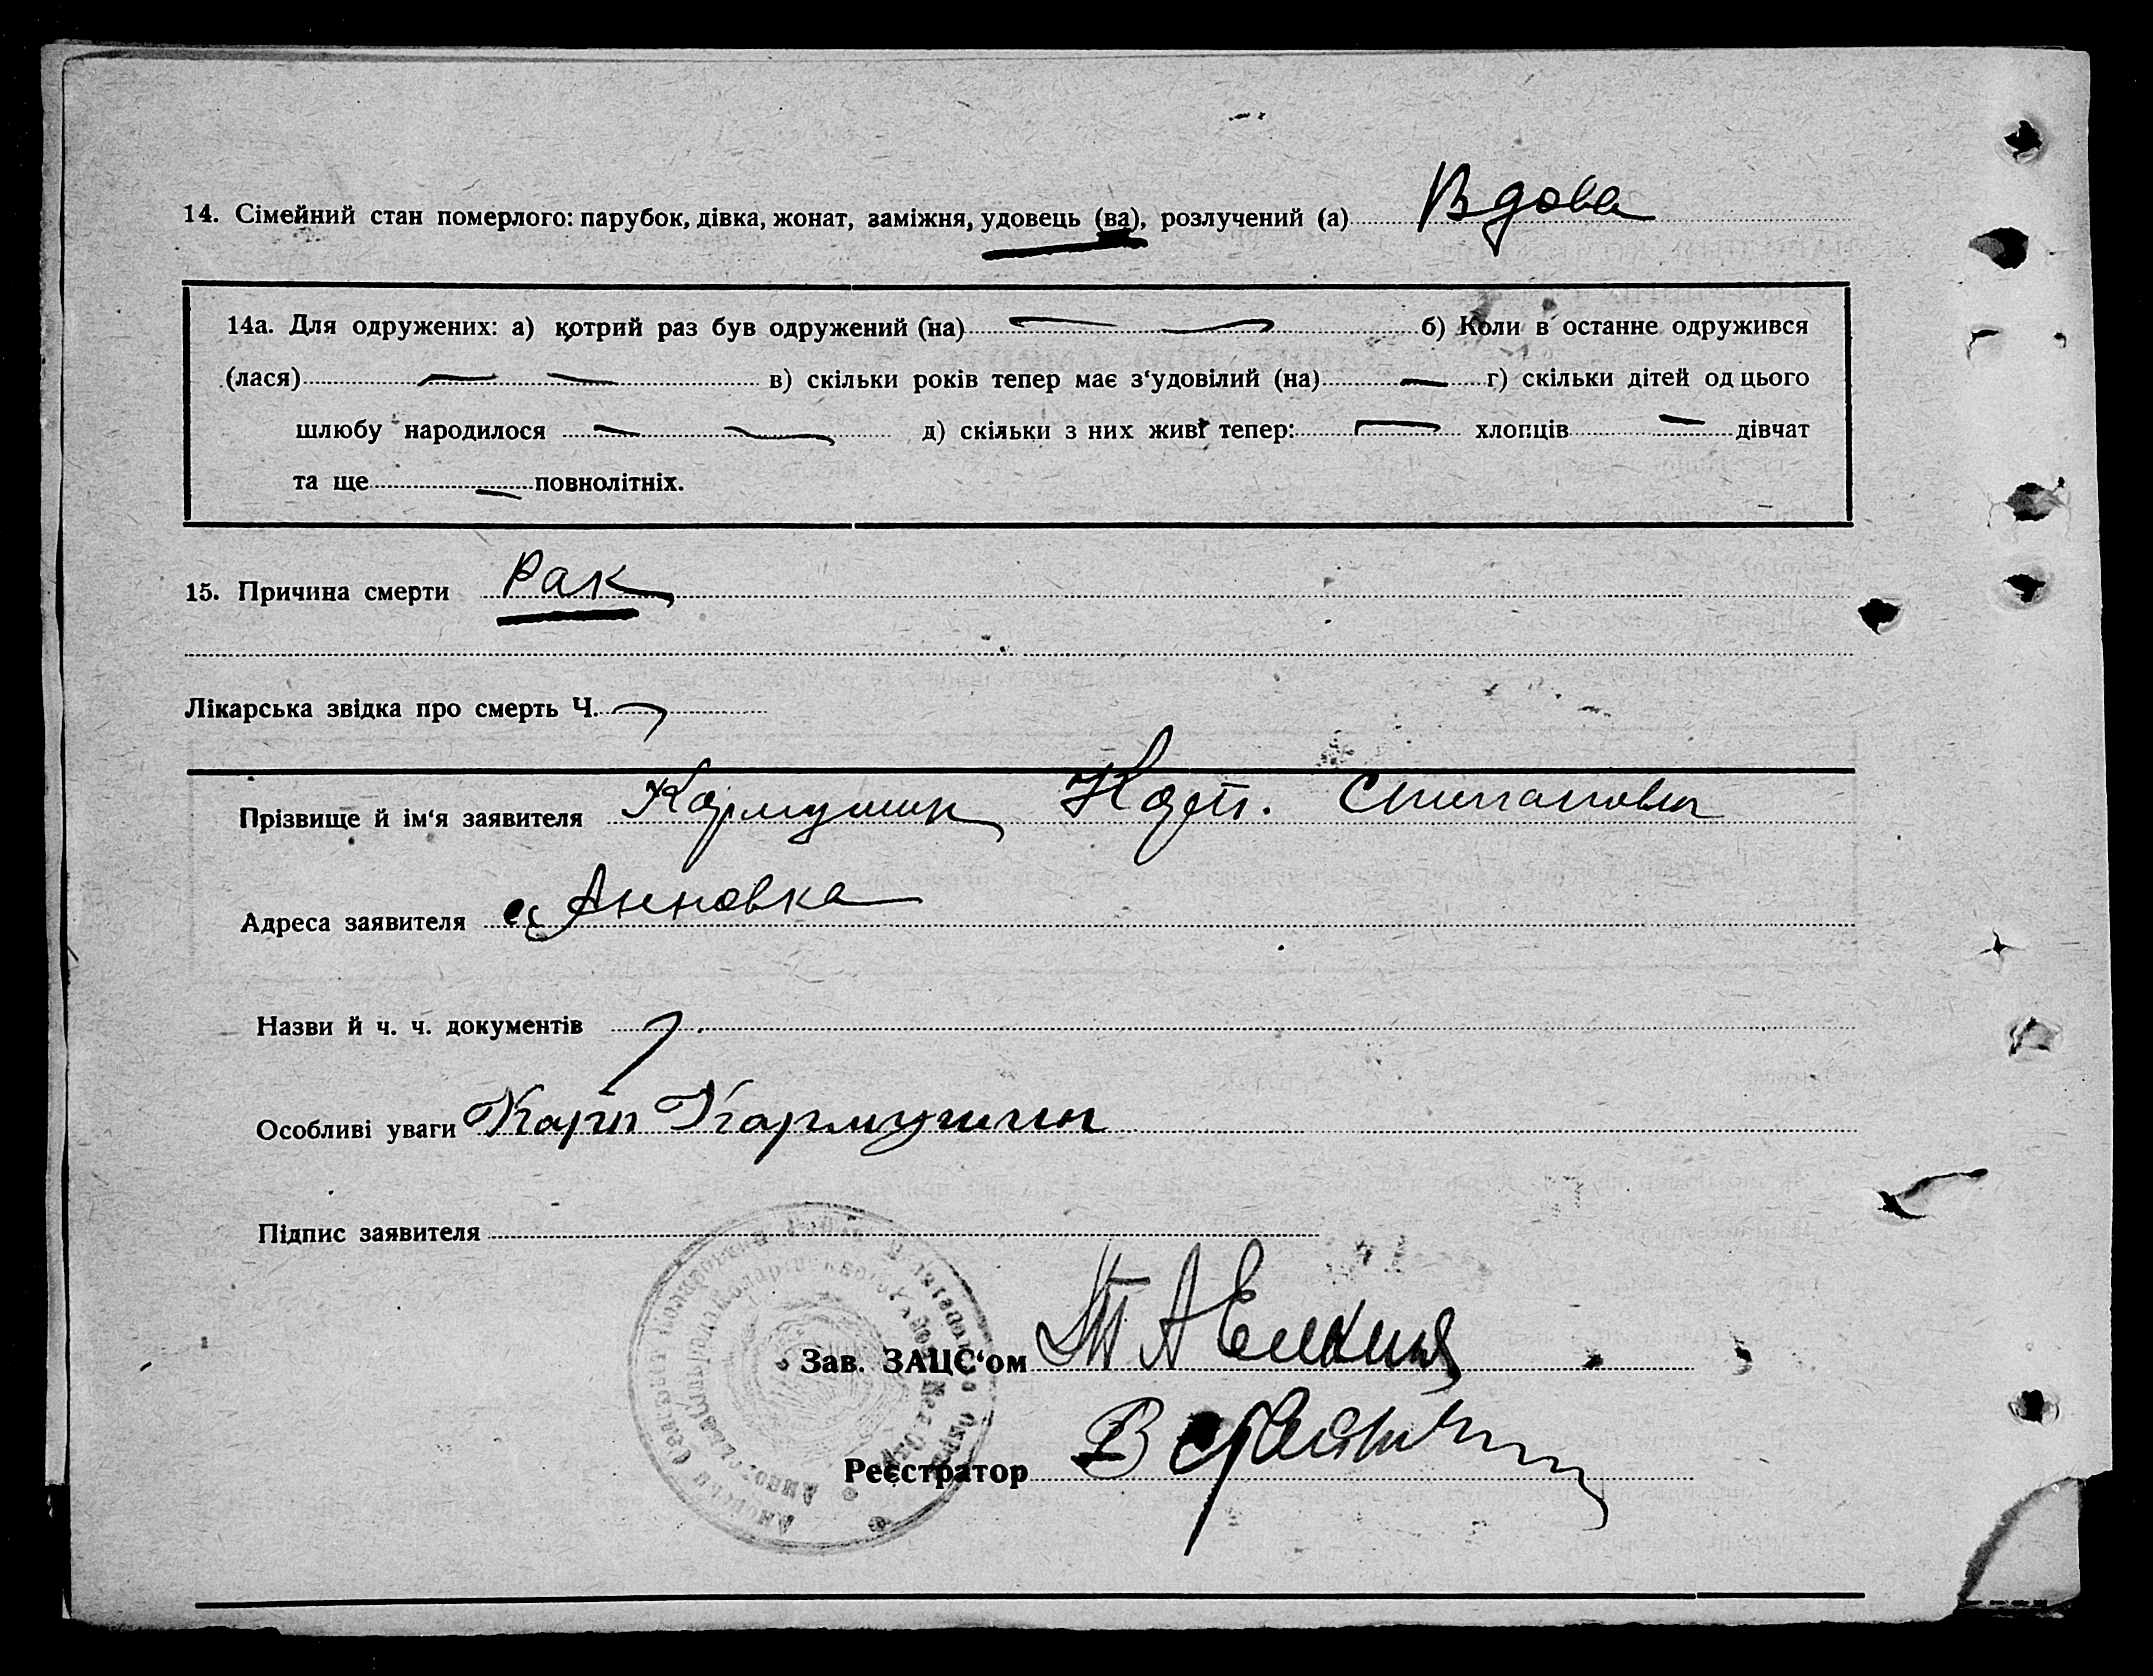 14. Сімейний стан померлого: парубок, дівка, жонат, заміжня, удовець (ва), розлучений (а) Вдова
14а. Для одружених: а) котрий раз був одружений (на) б) Коли в останне одружився
(лася) в) скільки років тепер має з‘удовілий (на) г) скільки дітей од цього
шлюбу народилося д) скільки з них живі тепер: хлопців дівчат
та ще повнолітніх.
15. Причина смерти Рак
Лікарська звідка про смерть Ч.
Прізвище й ім‘я заявителя Кармушин
Адреса заявителя Анновка
Назви й ч. ч. документів
Особливі уваги Карп Кармушин
Підпис заявителя
Зав. ЗАЦС‘ом
Реєстратор